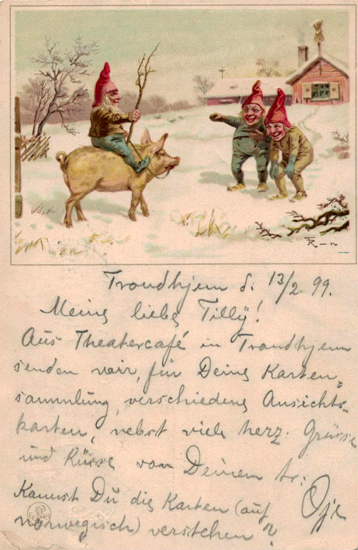 R–n
Trondhjem d. 13/2. 99.
Meine liebe Tilly!
Aus Theatercafé in Trondhjem
senden wir, für Deine Karten-
sammlung, verschiedene Ansichts-
karten, nebst viele herz. Grüsse
und Küsse von Deinen tr:
Kannst Du die Karten (auf
norwegisch) verstehen?